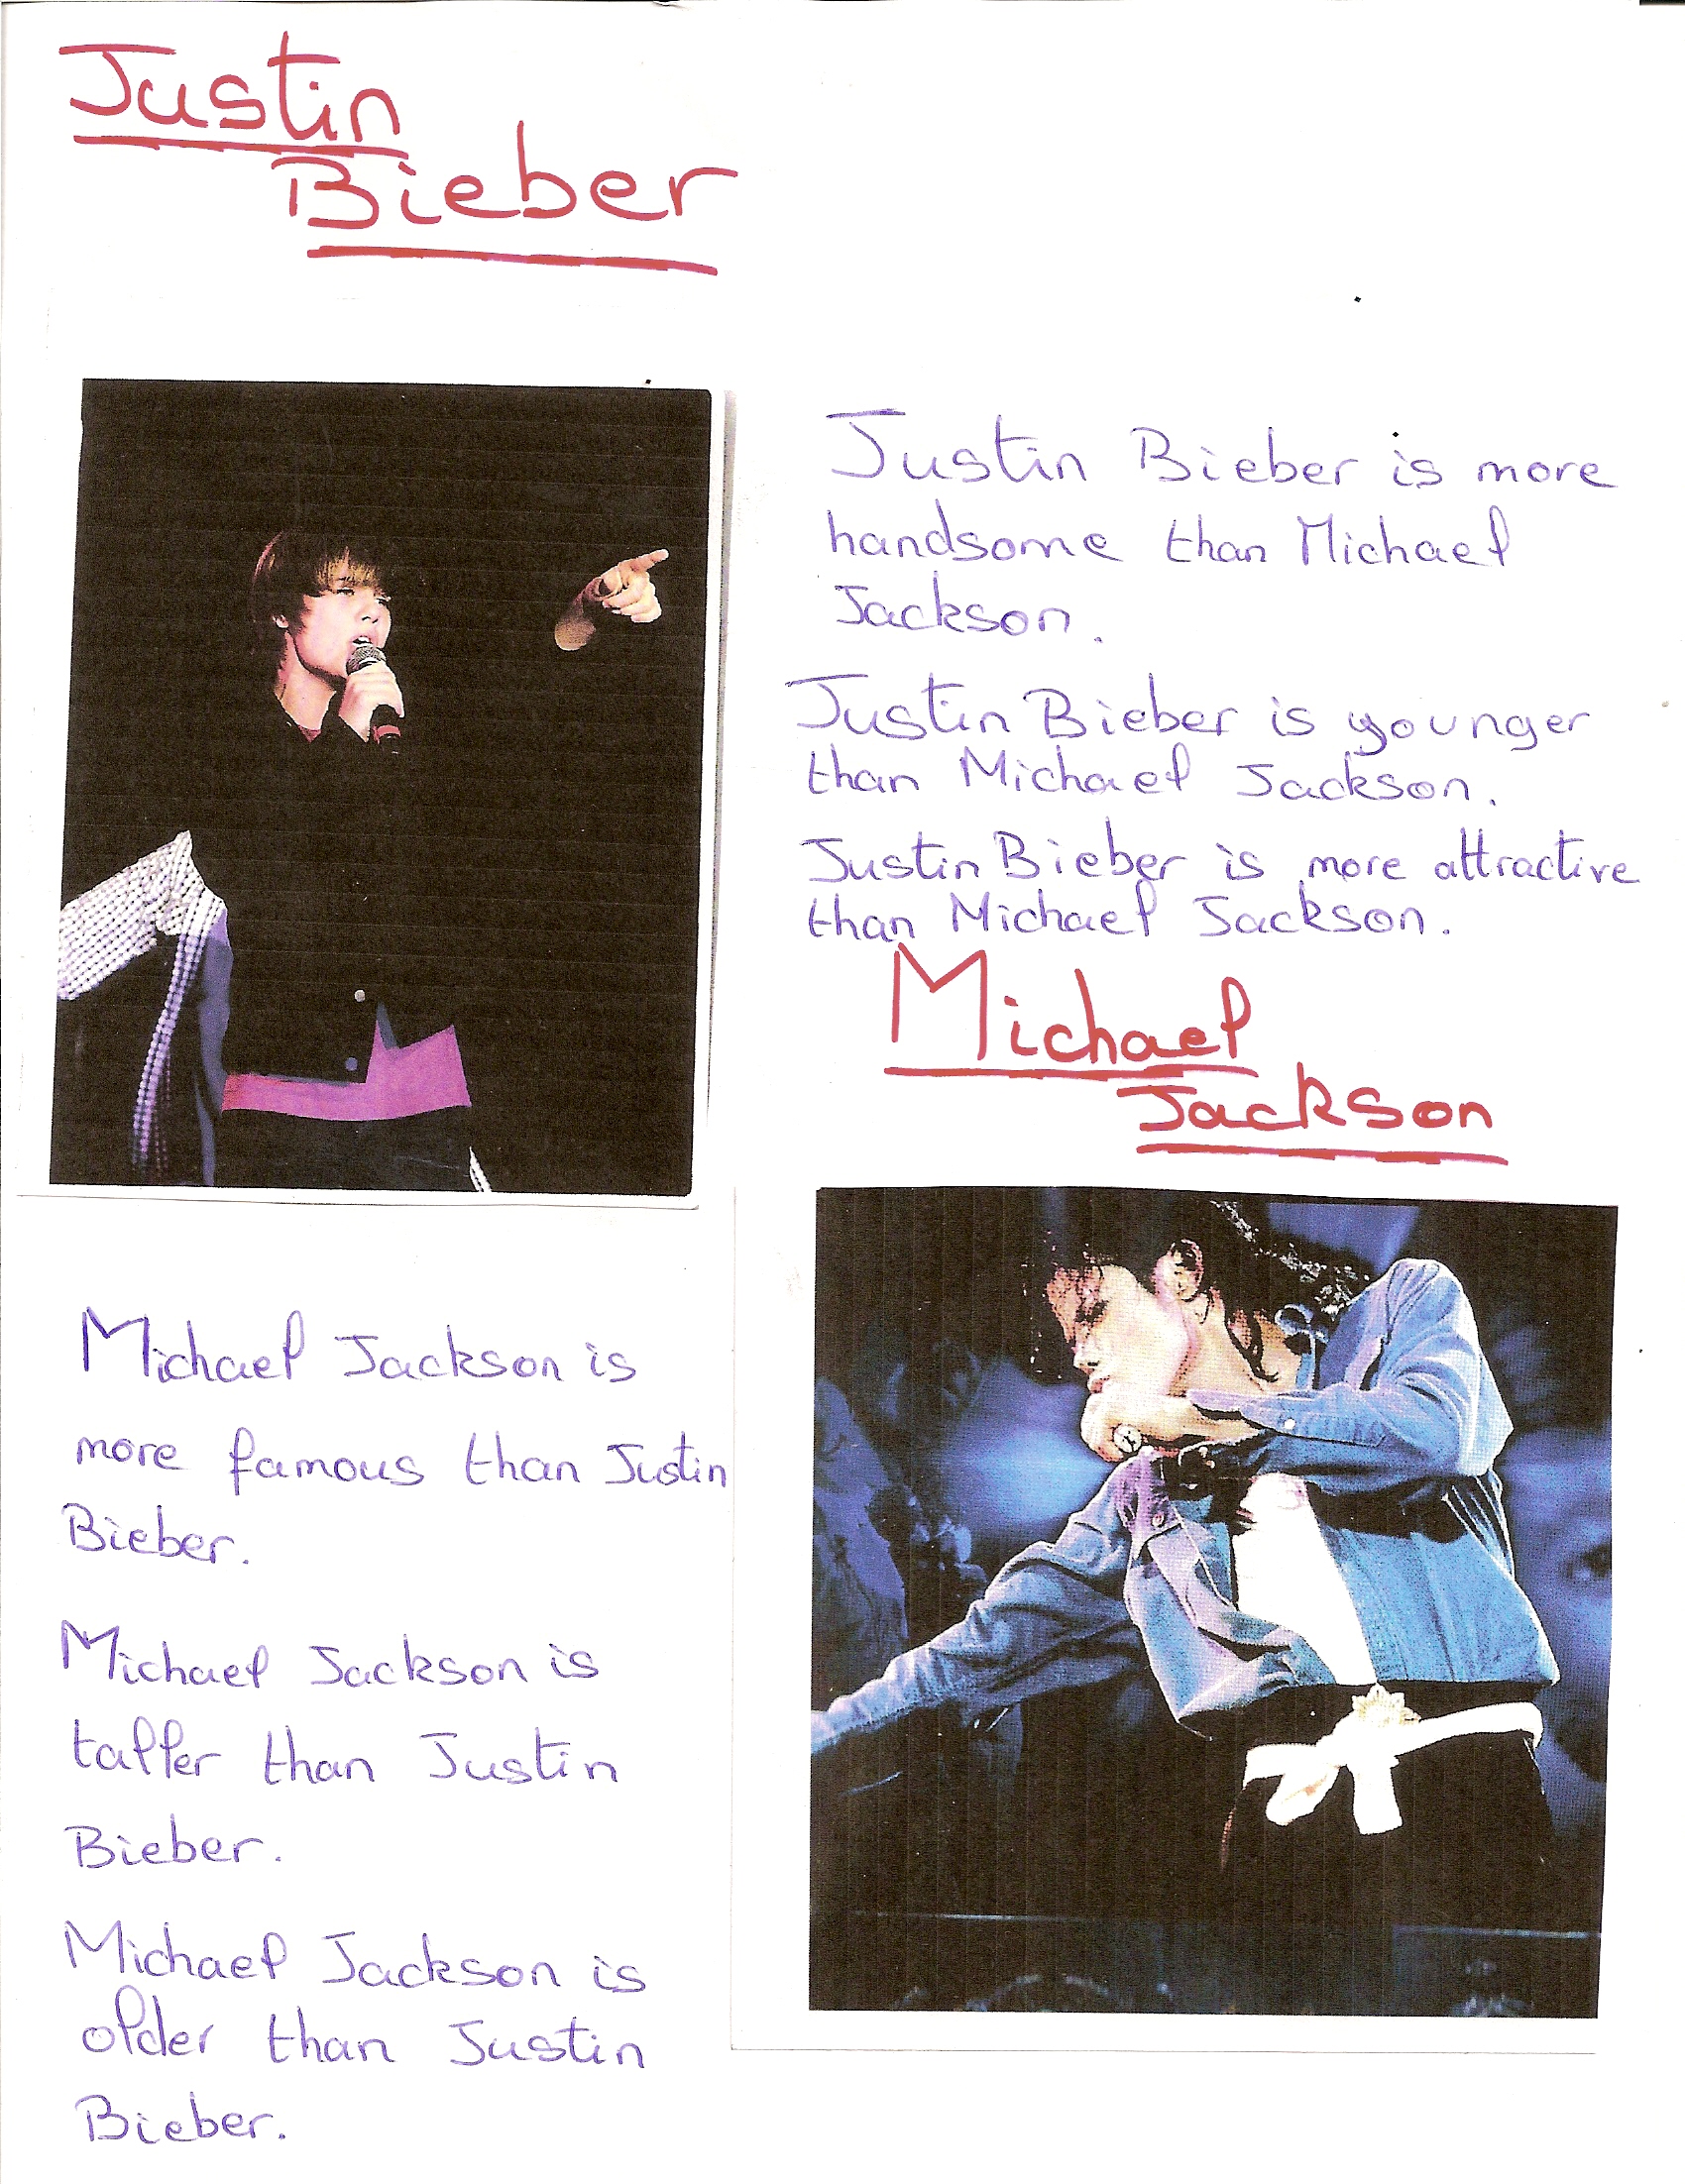 Justin
Bieber
Justin Bieber is more
handsome than Michael
Jackson.
Justin Bieber is younger
than Michael Jackson.
Justin Bieber is more attractive
than Michael Jackson.
Michael
Jackson
Michael Jackson is
more famous than Justin
Bieber.
Michael Jackson is
taller than Justin
Bieber.
Michael Jackson is
older than Justin
Bieber.